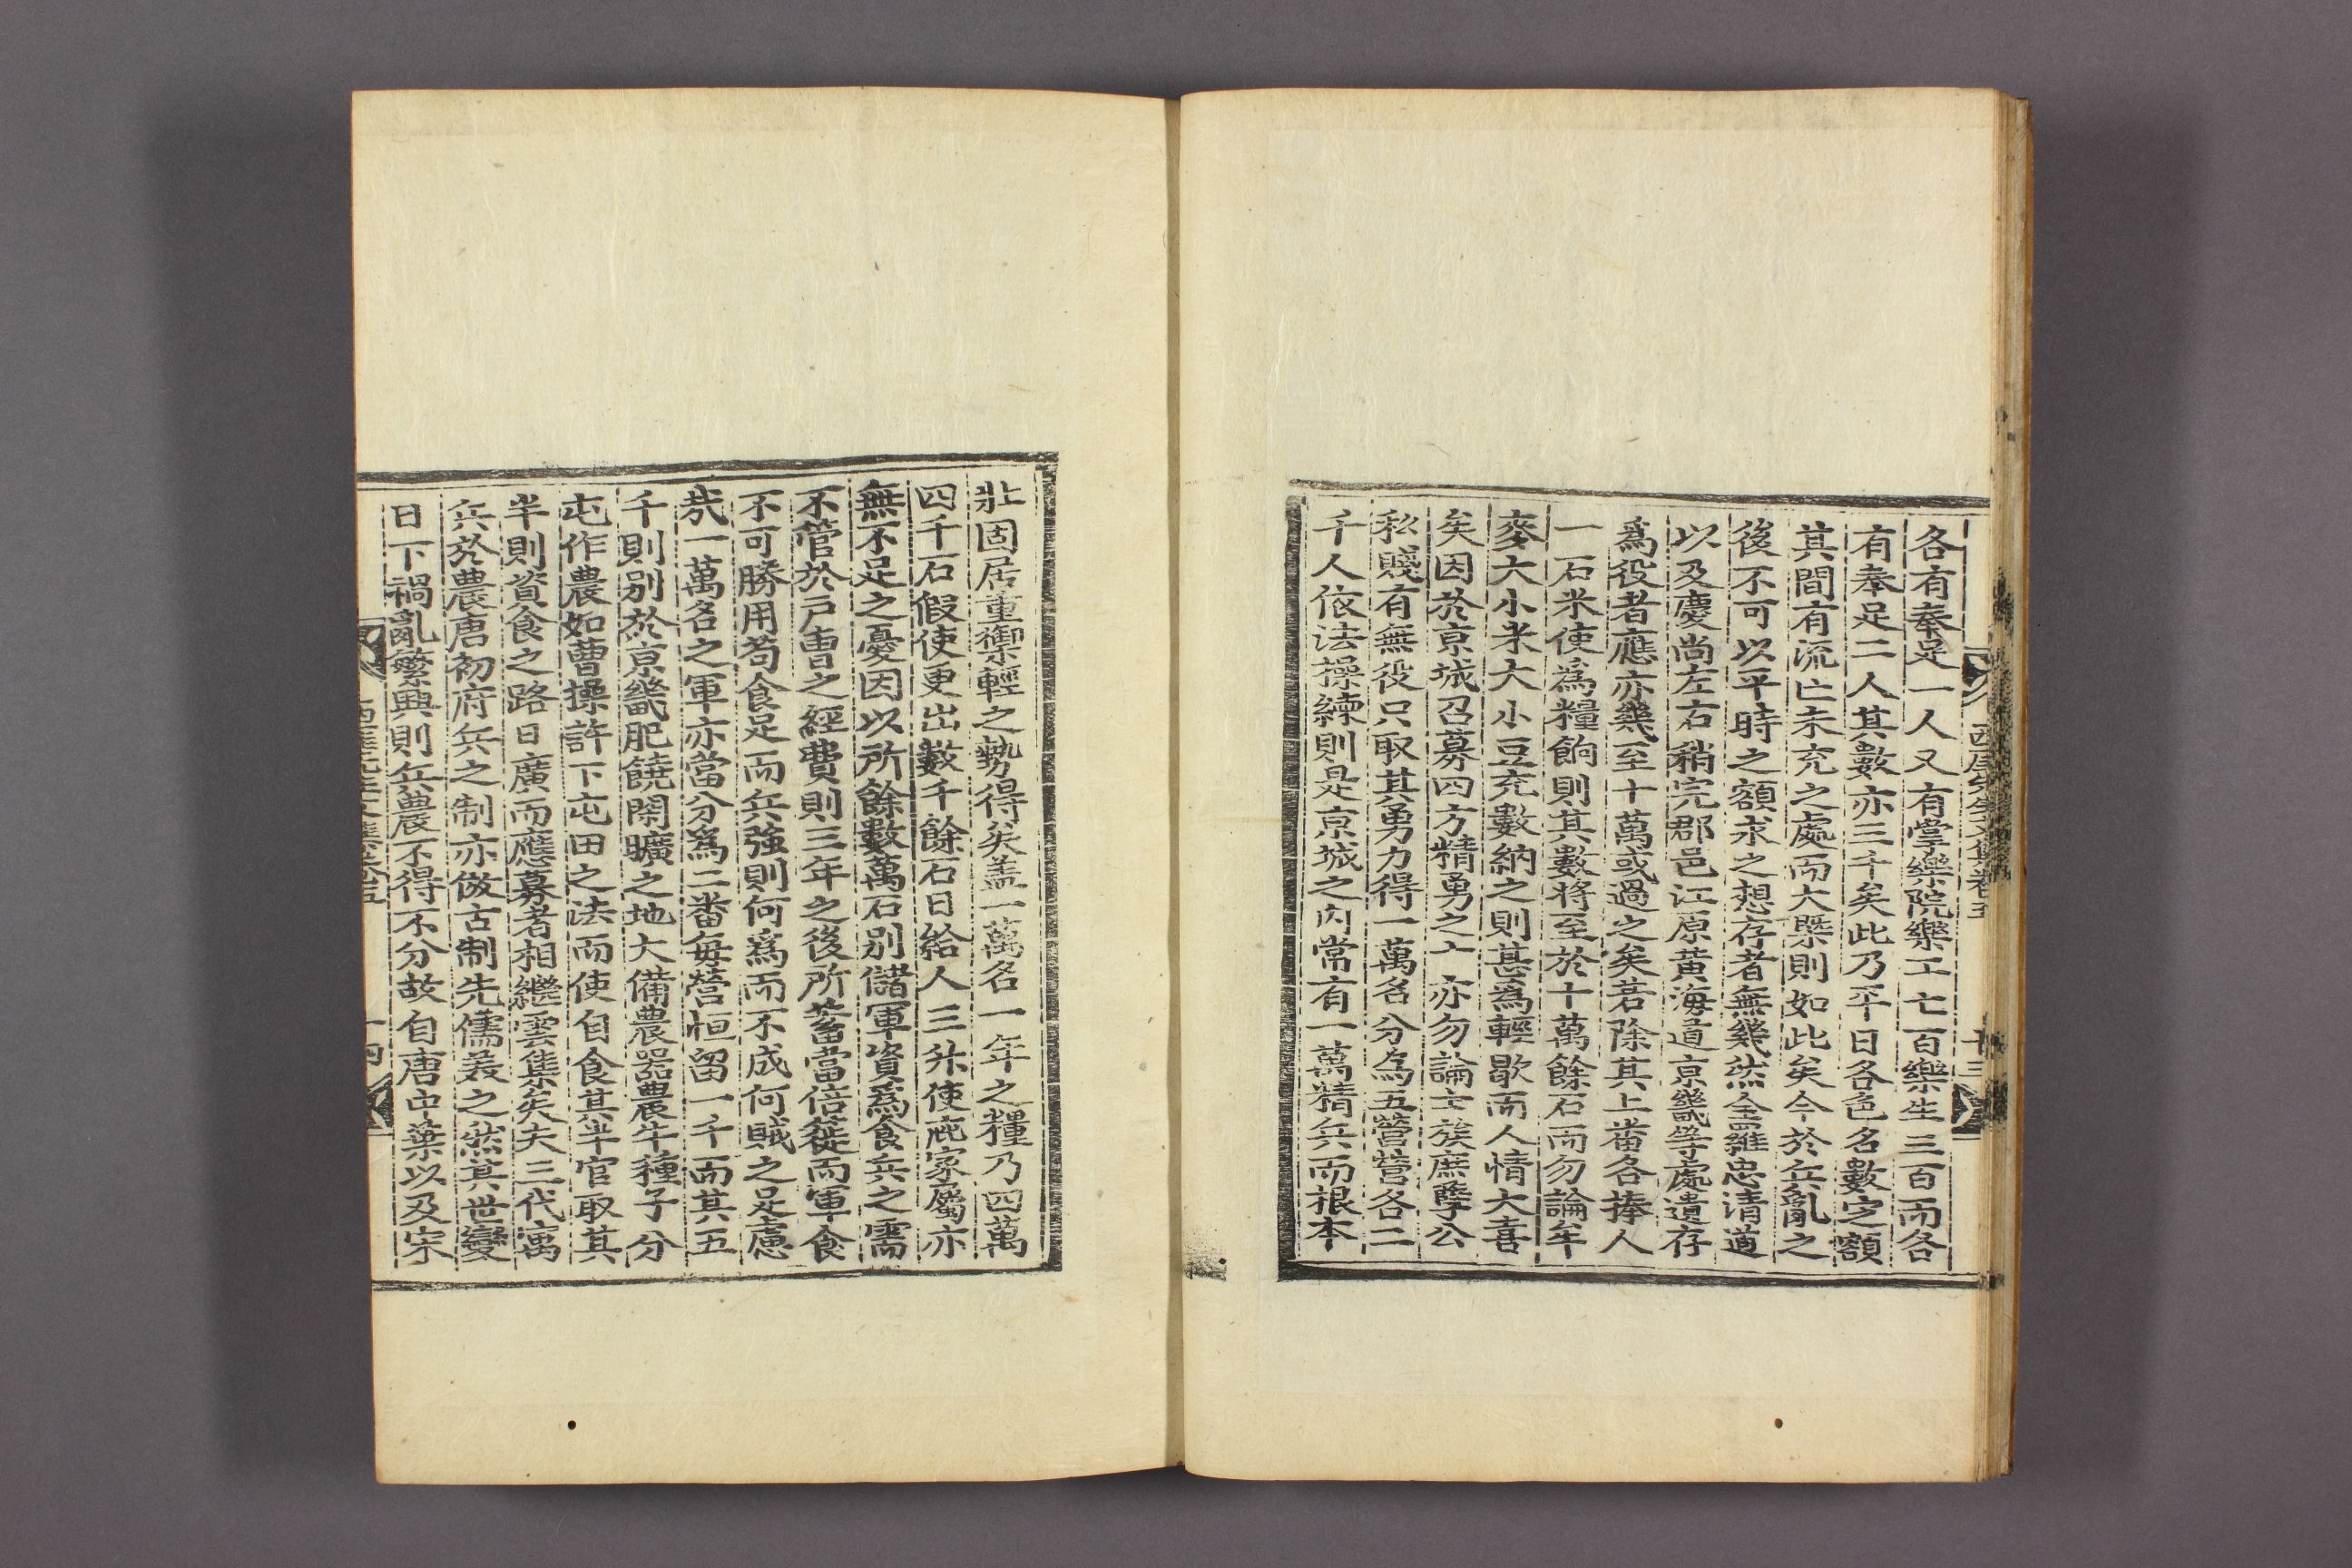 西厓先生文集卷之五
十三
各有奉足一人又有掌樂院樂工七百樂生三百而各
有奉足二人其數亦三千矣此乃平日各色名數定額
其間有流亡未充之處而大槩則如此矣今於兵亂之
後不可以平時之額求之想存者無幾然全羅忠淸道
以及慶尙左右稍完郡邑江原黃海道京畿等處遺存
爲役者應亦幾至十萬或過之矣若除其上番各捧人
一石米使爲糧餉則其數將至於十萬餘石而勿論牟
麥大小米大小豆充數納之則甚爲輕歇而人情大喜
矣因於京城召募四方精勇之士亦勿論士族庶孽公
私賤有無役只取其勇力得一萬名分爲五營營各二
千人依法操練則是京城之內常有一萬精兵而根本
壯固居重禦輕之勢得矣盖一萬名一年之糧乃四萬
四千石假使更出數千餘石日給人三升使庇家屬亦
無不足之憂因以所餘數萬石別儲軍資爲食兵之需
不管於戶曹之經費則三年之後所蓄當倍蓰而軍食
不可勝用苟食足而兵強則何爲而不成何賊之足慮
㢤一萬名之軍亦當分爲二番每營恒留一千而其五
千則別於京畿肥饒閑曠之地大備農器農牛種子分
屯作農如曹操許下屯田之法而使自食其半官取其
半則資食之路日廣而應募者相繼雲集矣夫三代寓
兵於農唐初府兵之制亦倣古制先儒羙之然其世變
日下禍亂繁興則兵農不得不分故自唐中葉以及宋
十四